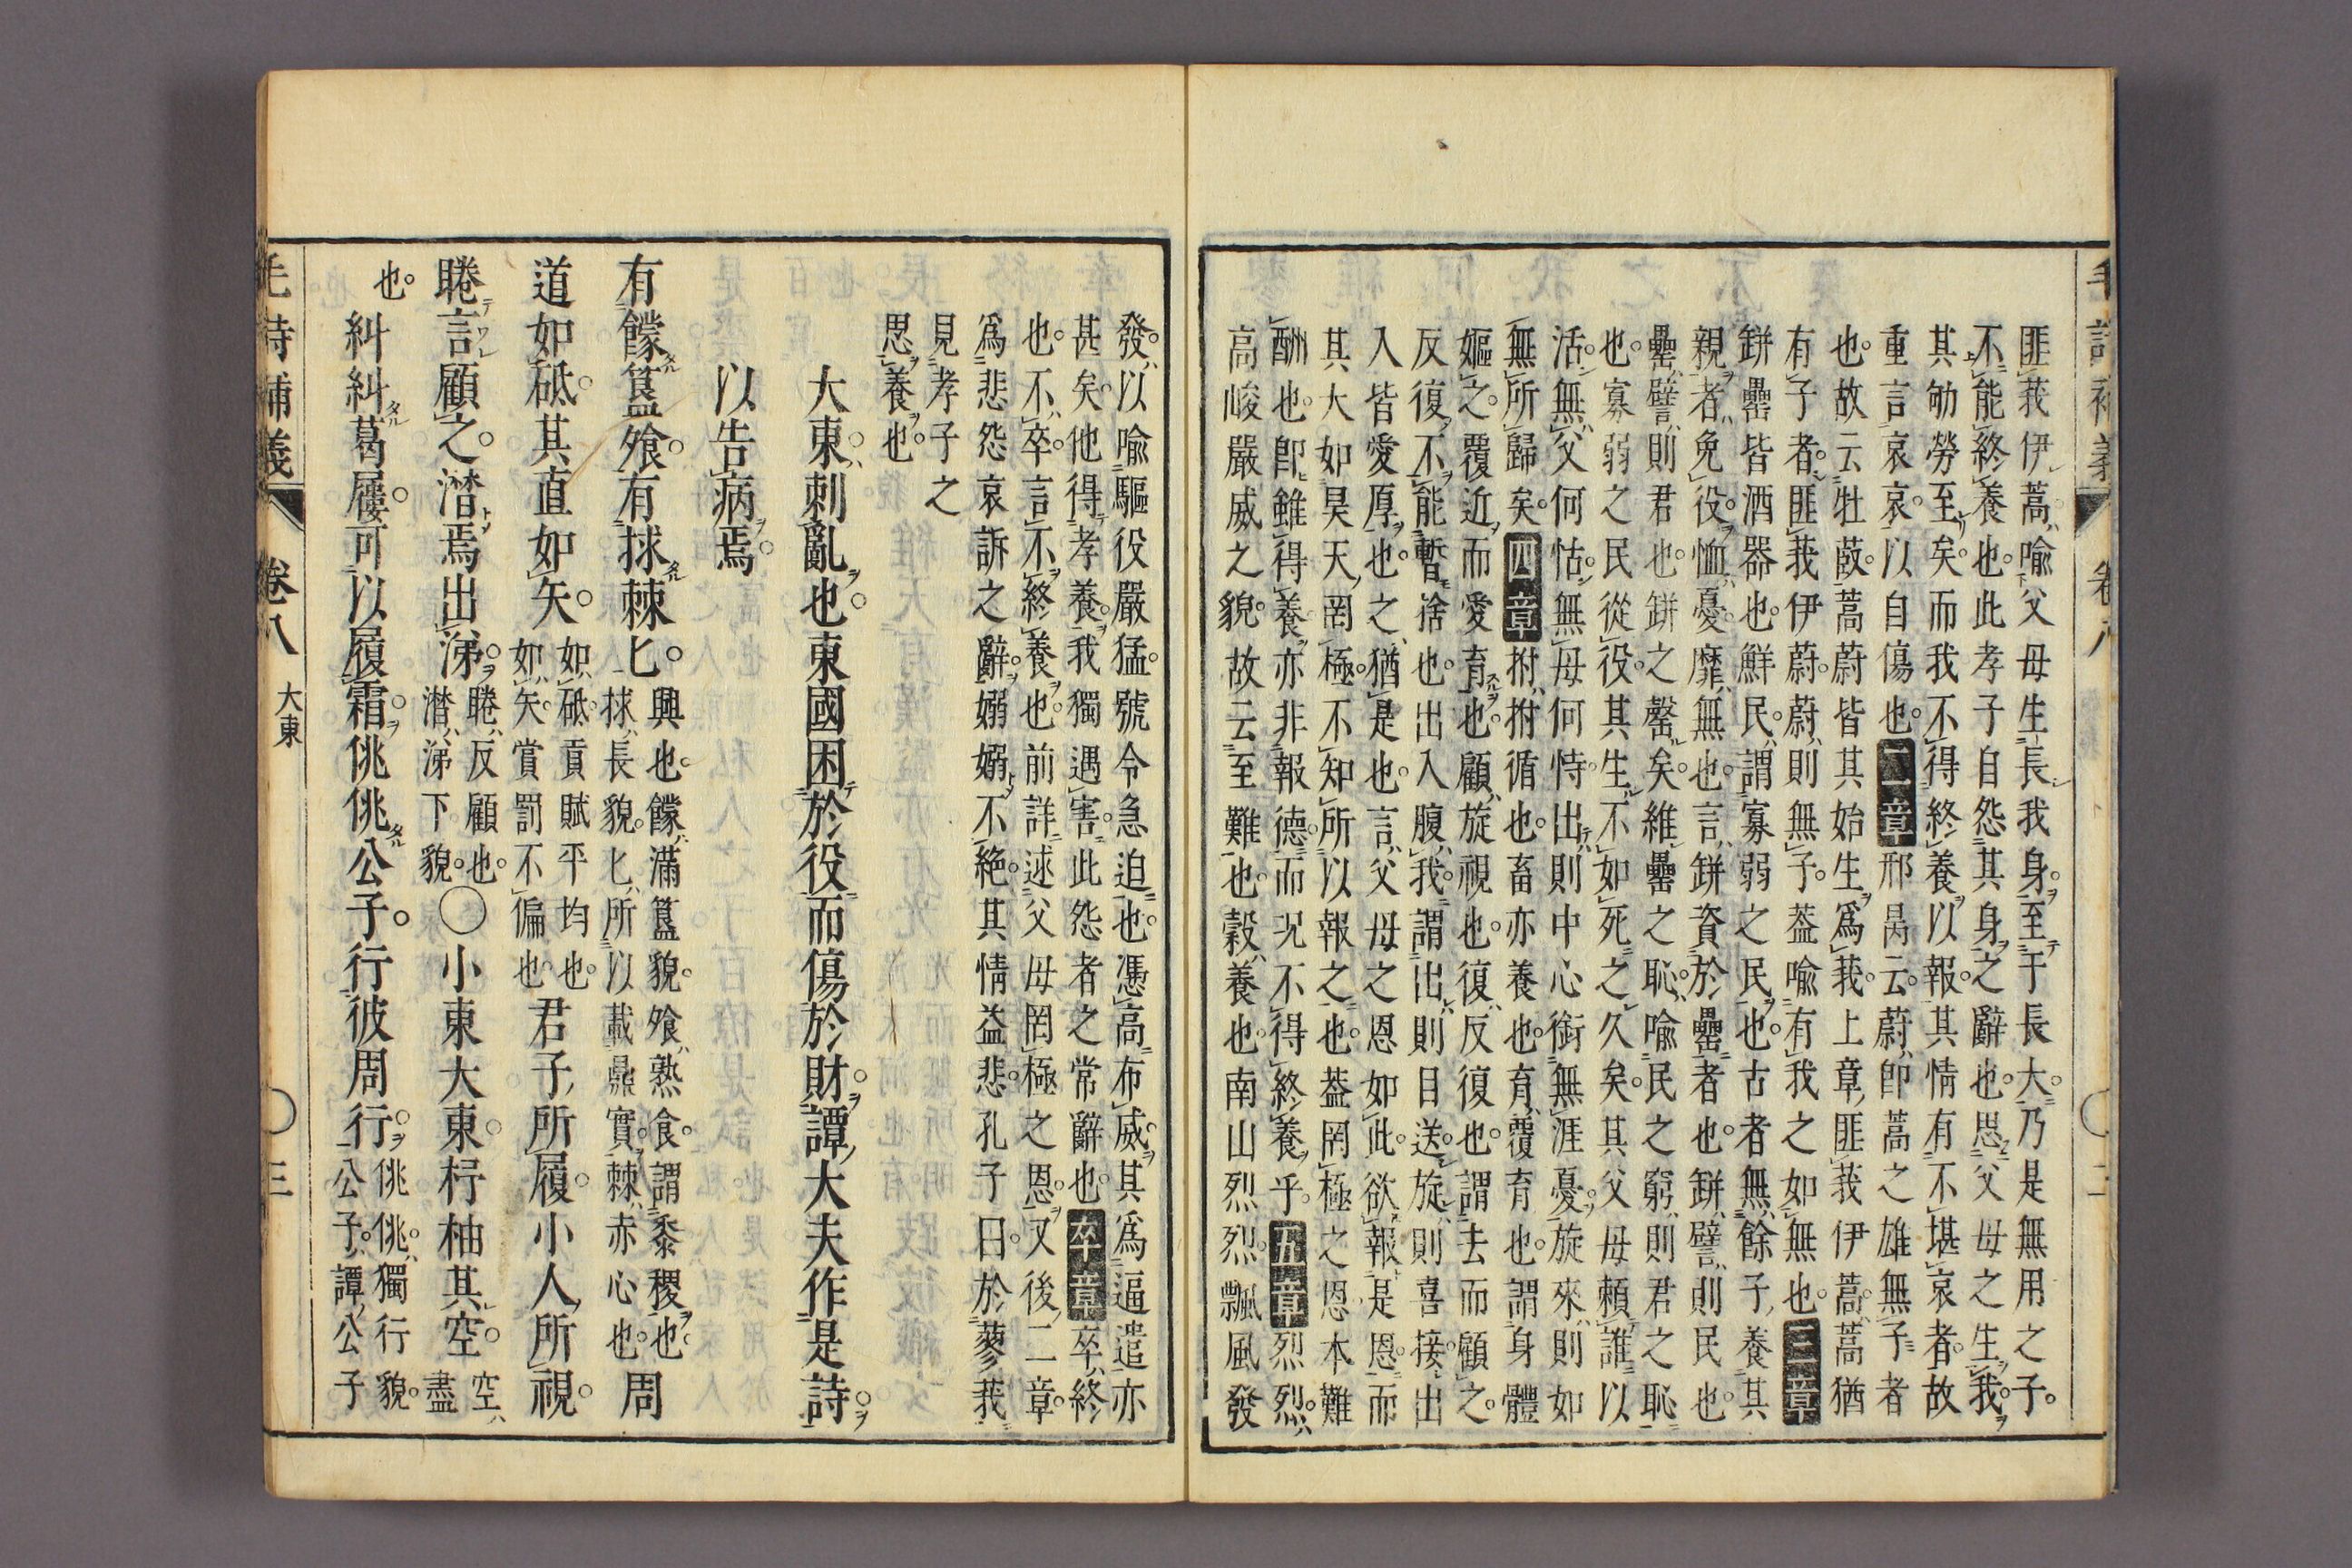 毛詩補義 卷八 二
匪莪伊蒿喻父母生長我身至于長大乃是無用之子
不能終養也此孝子自怨其身之辭也思父母之生我
其劬勞至矣而我不得終養以報其情有不堪哀者故
重言哀哀以自傷也二章邢昺云蔚卽蒿之雄無子者
也故云牡菣蒿蔚皆其始生爲莪上章匪莪伊蒿蒿猶
有子者匪莪伊蔚蔚則無子葢喻有我之如無也三章
缾罍皆酒器也鮮民謂寡弱之民也古者無餘子養其
親者免役恤憂靡無也言缾資於罍者也缾譬則民也
罍譬則君也缾之罄矣維罍之恥喻民之窮則君之恥
也寡弱之民從役其生不如死之久矣其父母賴誰以
活無父何怙無母何恃出則中心銜無涯憂旋來則如
無所歸矣四章拊拊循也畜亦養也育覆育也謂身體
嫗之覆近而愛育也顧旋視也復反復也謂去而顧之
反復不能暫捨也出入腹我謂出則目送旋則喜接出
入皆愛厚也之猶是也言父母之恩如此欲報是恩而
其大如昊天罔極不知所以報之也葢罔極之恩本難
酬也卽雖得養亦非報德而况不得終養乎五章烈烈
高峻嚴威之貌故云至難也穀養也南山烈烈飄風發
發以喻驅役嚴猛號令急迫也憑高布威其爲逼遣亦
甚矣他得孝養我獨遇害此怨者之常辭也卒章卒終
也不卒言不終養也前詳述父母罔極之恩又後二章
爲悲怨哀訴之辭嫋嫋不絕其情益悲孔子曰於蓼莪
見孝子之
思養也
大東刺亂也東國困於役而傷於財譚大夫作是詩
以告病焉
有饛簋飧有捄棘匕興也饛滿簋貌飧熟食謂黍稷也
捄長貌匕所以載鼎實棘赤心也周
道如砥其直如矢如砥貢賦平均也
如矢賞罰不偏也君子所履小人所視
睠言顧之潸焉出涕睠反顧也
潸涕下貌〇小東大東杼柚其空空
盡
也糾糾葛屨可以履霜佻佻公子行彼周行佻佻獨行貌
公子譚公子
毛詩補義 卷八 大東 三